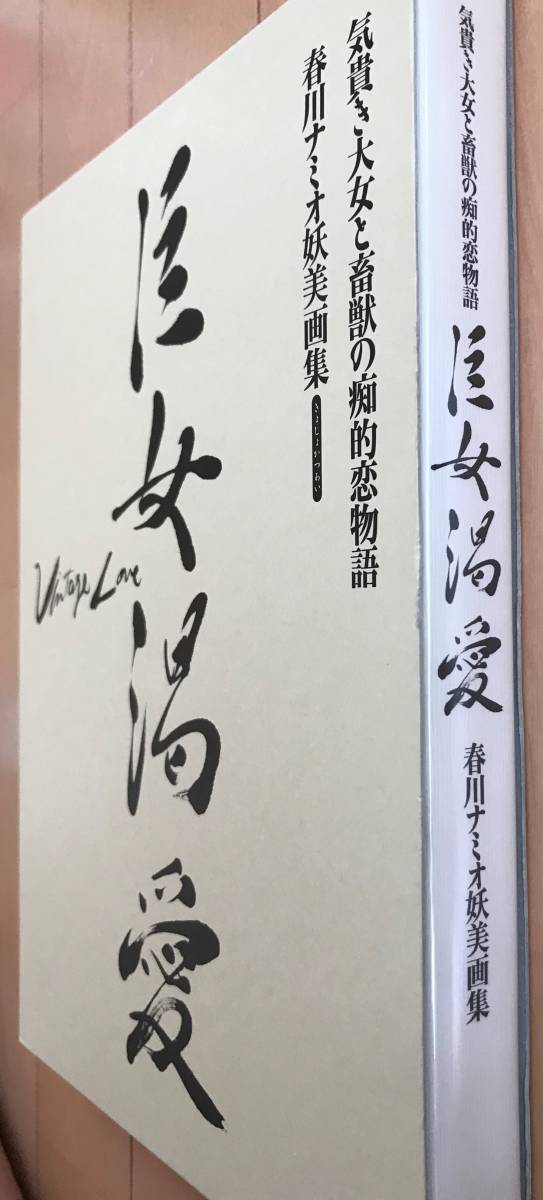 気貴き大女と畜獣の痴的恋物語
春川ナミオ妖美画集
きょじょかつあい
巨女渇愛
Vintage Love
気貴き大女と畜獣の痴的恋物語
巨女渇愛
春川ナミオ妖美画集